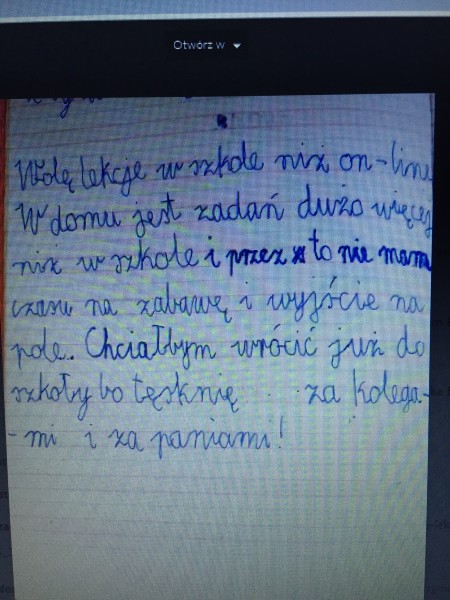 Otwórz w
Wolę lekcje w szkole niż on-line
W domu jest zadań dużo więcej
niż w szkole i przez to nie mam
czasu na zabawę i wyjście na
pole. Chciałbym wrócić już do
szkoły bo tęsknię za kolega-
-mi i za paniami!